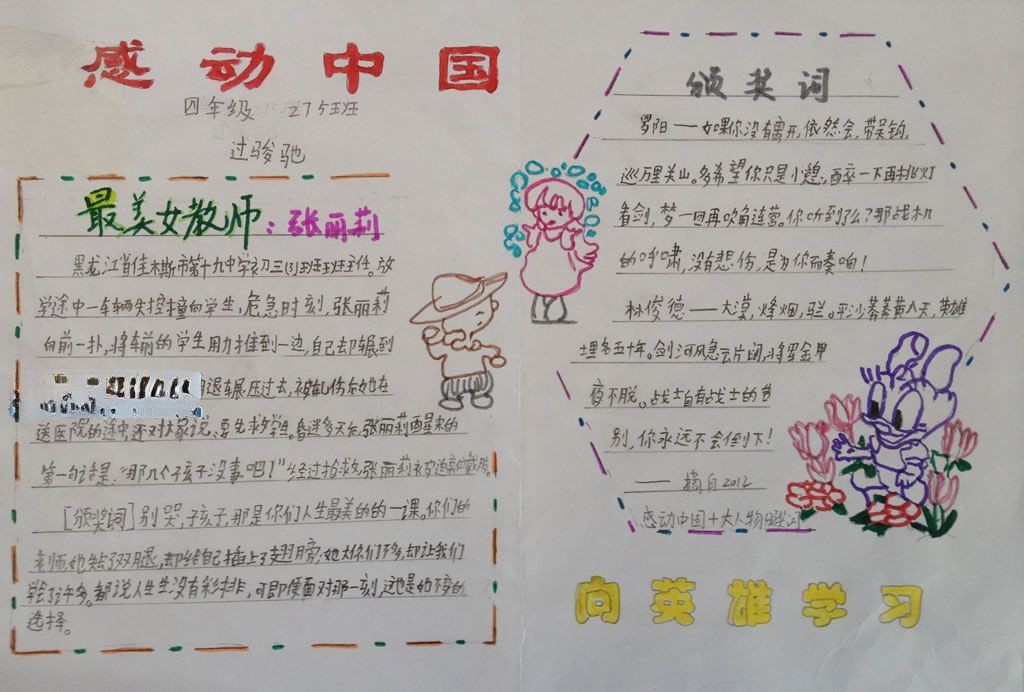 感动中国
四年级 275班
过骏驰
最美女教师:张丽莉
黑龙江省佳木斯市第十九中学初三(3)班班主任。放
学途中一车辆失控撞向学生,危急时刻,张丽莉
向前一扑,将车前的学生用力推到一边,自己却辗到
退辗压过去,被轧伤后她在
送医院的途中还对大家说、要先救学生。昏迷多天后,张丽莉醒来的
第一句话是:“那几个孩子没事吧!”经过抢救张丽莉被迫高位截肢。
[颁奖词]别哭,孩子,那是你们人生最美的的一课。你们的
老师,她失了双腿,却给自己插上了翅膀;她大你们不多,却让我们
学会了许多。都说人生没有彩排,可即便面对那一刻,这也是她不变的
选择。
颁奖词
罗阳——如果你没有离开,依然会,带吴钩,
巡万里关山。多希望你只是小憩,醉一下再挑灯
看剑,梦一回再吹角连营。你听到了么?那战机
的呼啸,没有悲伤,是为你而奏响!
林俊德——大漠,烽烟,马兰。平沙莽莽黄入天,英雄
埋名五十年。剑河风急云片阔,将军金甲
夜不脱。战士自有战士的告
别,你永远不会倒下!
——摘自2012
感动中国十大人物颁奖词
向英雄学习